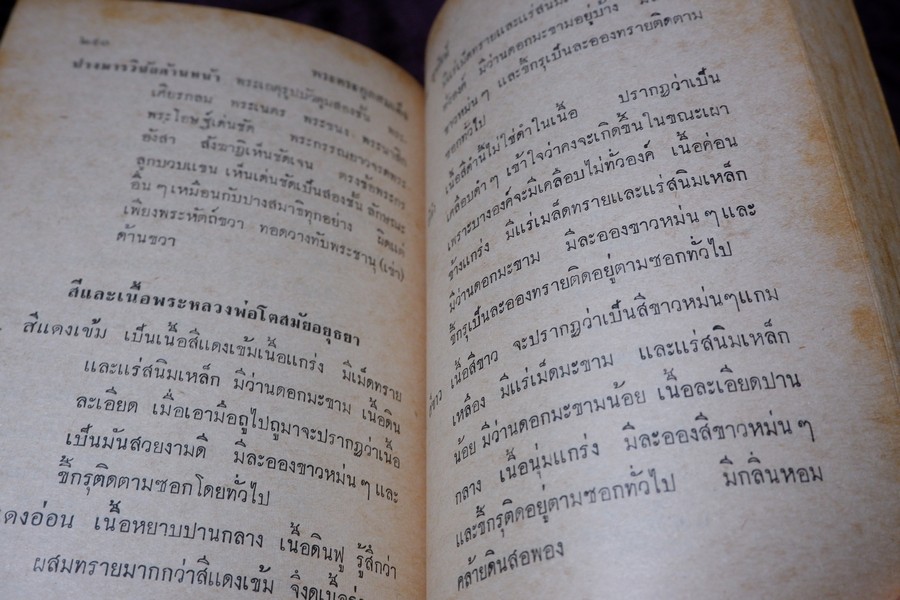 ๒๕๓
พระตระกูลสมเด็จ
ปางมารวิชัยด้านหน้า พระเกตุรูปบัวตูมสองชั้น
เศียรกลม พระเนตร พระขนง พระนาสิก
พระโอษฐ์เด่นชัด พระกรรณยาวจรดพระ
อังสา สังฆาฏิเห็นชัดเจน ตรงข้อพระกร
ลูกบวบแขน เห็นเด่นชัดเป็นสองชั้น ลักษณะ
อื่น ๆ เหมือนกับปางสมาธิทุกอย่าง ผิดแต่
เพียงพระหัตถ์ขวา ทอดวางทับพระชานุ (เข่า)
ด้านขวา
สีและเนื้อพระหลวงพ่อโตสมัยอยุธยา
สีแดงเข้ม เป็นเนื้อสีแดงเข้มเนื้อแกร่ง มีเม็ดทราย
และแร่สนิมเหล็ก มีว่านดอกมะขาม เนื้อดิน
ละเอียด เมื่อเอามือถูไปถูมาจะปรากฏว่าเนื้อ
เป็นมันสวยงามดี มีละอองขาวหม่น ๆ และ
ขี้กรุติดตามซอกโดยทั่วไป
แดงอ่อน เนื้อหยาบปานกลาง เนื้อดินฟู รู้สึกว่า
ผสมทรายมากกว่าสีแดงเข้ม จึงดูเนื้อ
มีแร่เม็ดทรายและแร่สนิม
ทั้งองค์ มีว่านดอกมะขามอยู่บ้าง
ขาวหม่น ๆ และขี้กรุเป็นละอองทรายติดตาม
ซอกทั่วไป
เนื้อสีดำนี้ไม่ใช่ดำในเนื้อ ปรากฏว่าเป็น
เคลือบดำ ๆ เข้าใจว่าคงจะเกิดขึ้นในขณะเผา
เพราะบางองค์จะมีเคลือบไม่ทั่วองค์ เนื้อค่อน
ข้างแกร่ง มีแร่เมล็ดทรายและแร่สนิมเหล็ก
มีว่านดอกมะขาม มีละอองขาวหม่น ๆ และ
ขี้กรุเป็นละอองทรายติดอยู่ตามซอกทั่วไป
เนื้อสีขาว จะปรากฏว่าเป็นสีขาวหม่นๆแกม
เหลือง มีแร่เม็ดมะขาม และแร่สนิมเหล็ก
น้อย มีว่านดอกมะขามน้อย เนื้อละเอียดปาน
กลาง เนื้อนุ่มแกร่ง มีละอองสีขาวหม่น ๆ
และขี้กรุติดอยู่ตามซอกทั่วไป มีกลิ่นหอม
คล้ายดินสอพอง